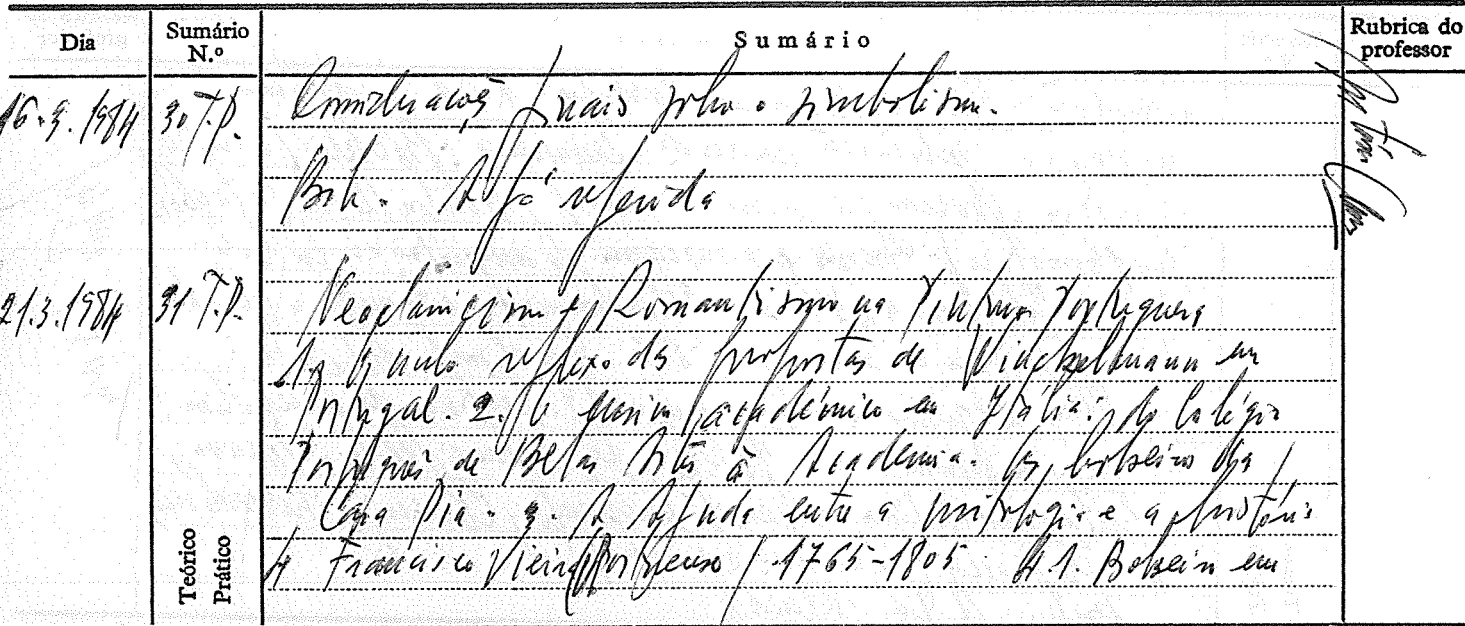 Dia Sumário N.º Sumário Rubrica do professor
16-3.1984 30 T.P. Considerações finais sobre o simbolismo.
Bib. A já referida
21.3.1984 31 T.P. Neoclassicismo e Romantismo na Pintura Portuguesa
1. O nulo reflexo das propostas de Winckelmann em
Portugal. 2. O ensino académico em Itália: do Colégio
Português de Belas Artes à Academia. Os bolseiros da
Casa Pia. 3. A Ajuda entre a mitologia e a história
4 Francisco Vieira (Portuense) 1765-1805 4.1. Bolseiro em
Teórico Prático